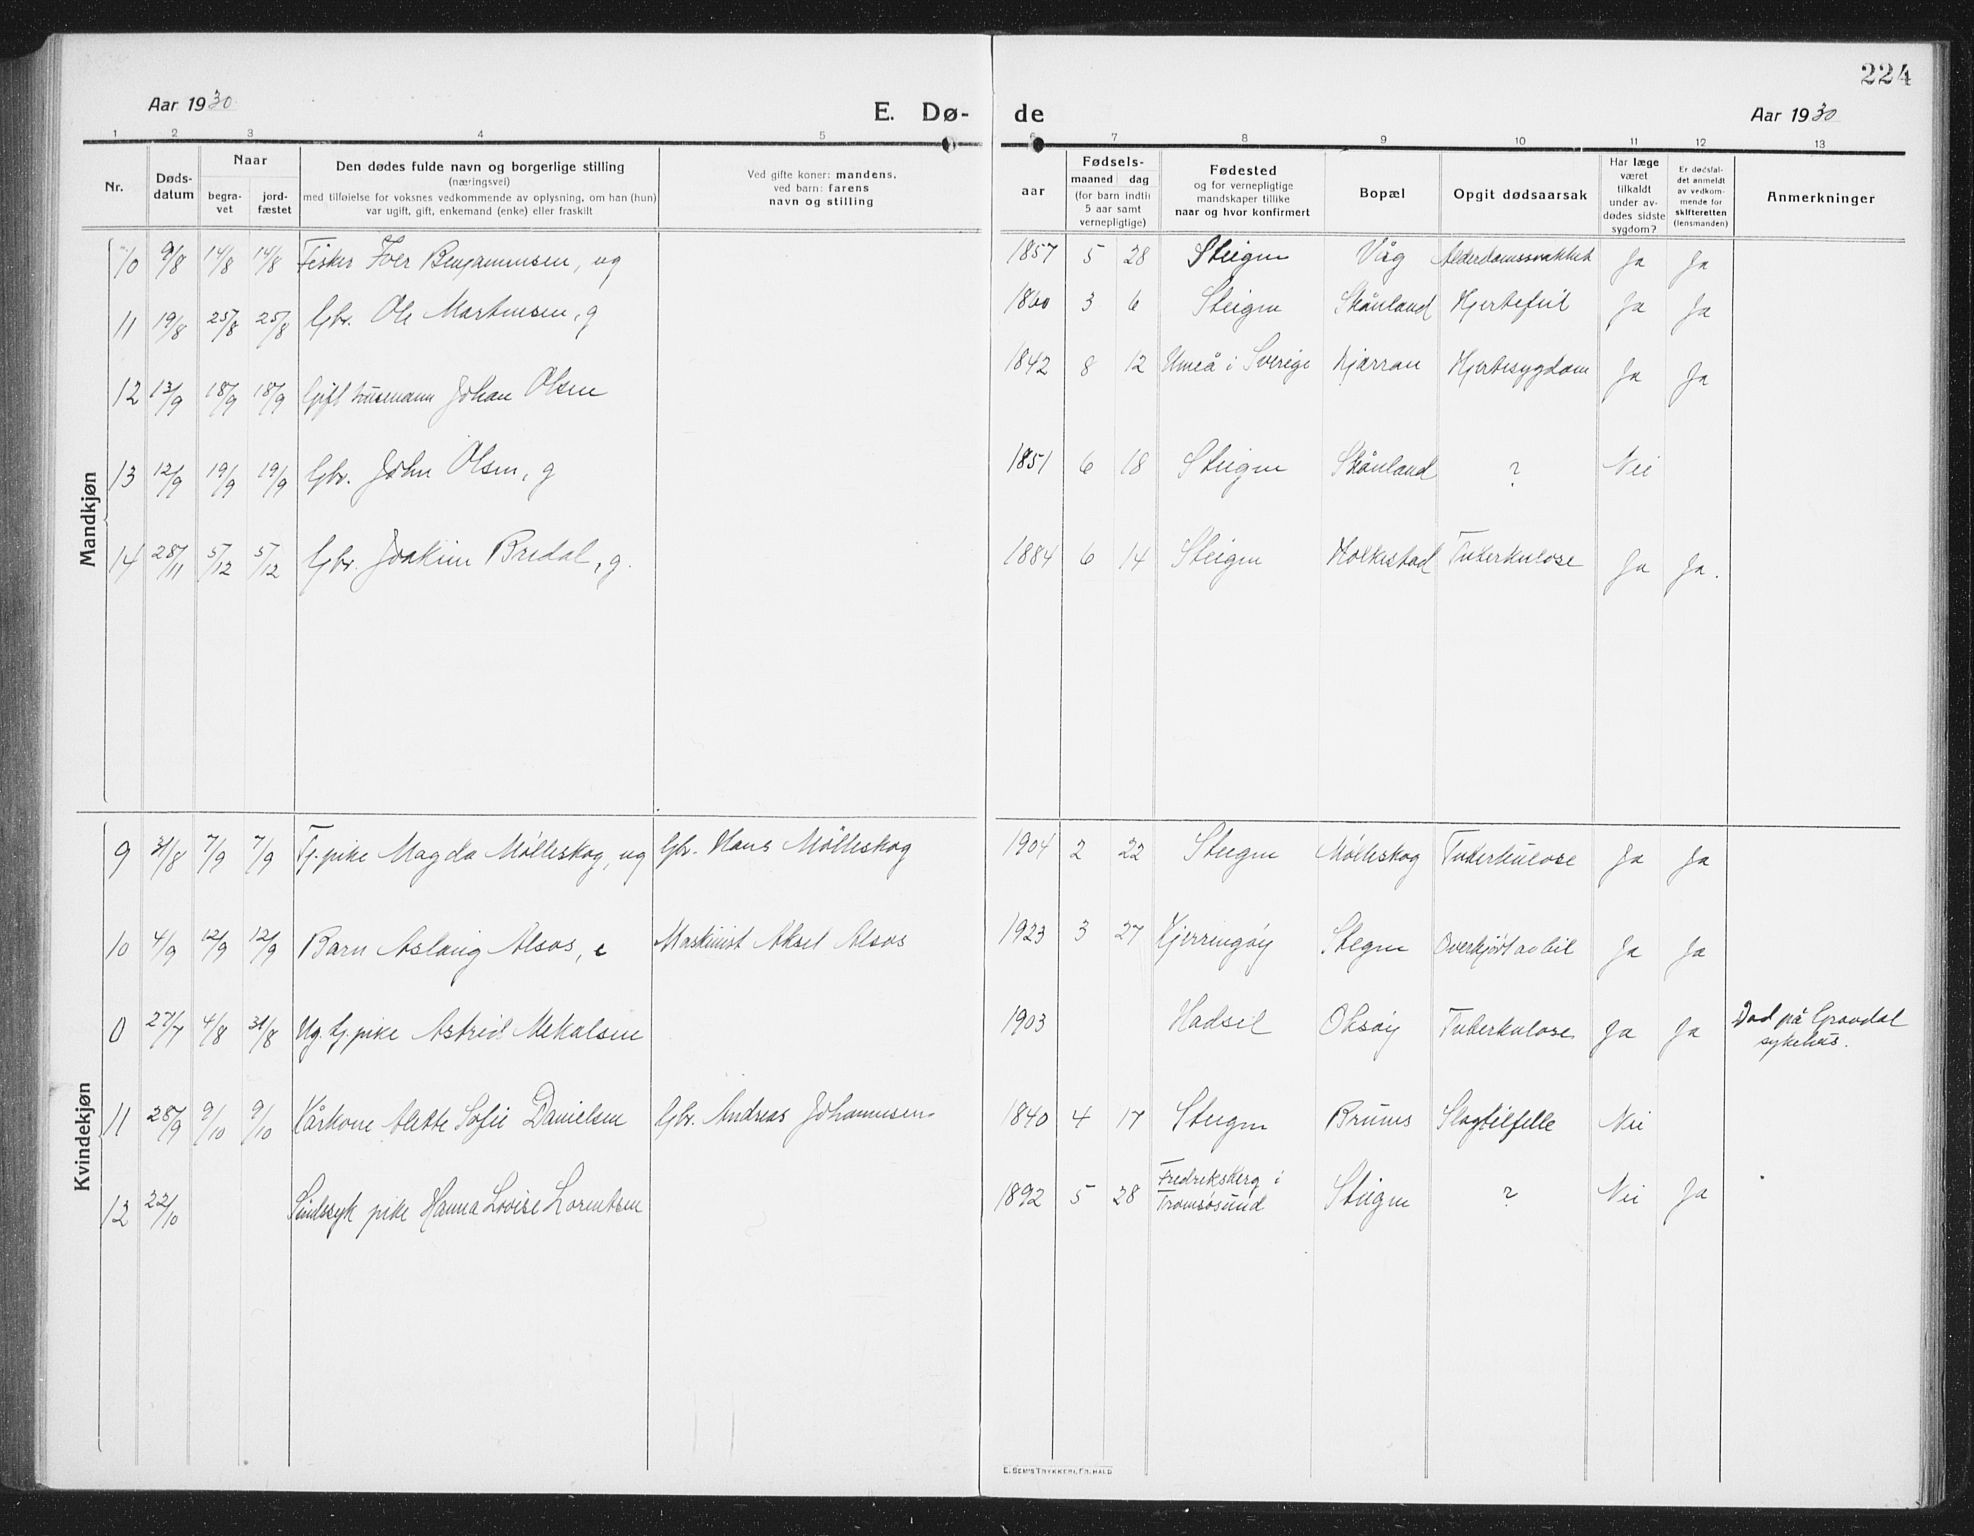 224
Aar 1930
E. Dø-
de
Aar 1930
1 2 3 4 5 6 7 8 9 10 11 12 13
Nr.
Døds-
datum
Naar
begra-
vet
jord-
fæstet
Den dødes fulde navn og borgerlige stilling
(næringsvei)
med tilføielse for voksnes vedkommende av oplysning, om han (hun)
var ugift, gift, enkemand (enke) eller fraskilt
Ved gifte koner: mandens,
ved barn: farens
navn og stilling
aar
Fødsels-
maaned dag
(for barn indtil
5 aar samt
vernepligtige)
Fødested
og for vernepligtige
mandskaper tillike
naar og hvor konfirmert
Bopæl
Opgit dødsaarsak
Har læge
været
tilkaldt
under av-
dødes sidste
sygdom?
Er dødsfal-
det anmeldt
av vedkom-
mende for
skifteretten
(lensmanden)
Anmerkninger
Mandkjøn
10 9/8 14/8 14/8 Fisker Iver Benjaminsen, ug 1857 5 28 Steigen Våg Alderdomssvakhet Ja Ja
11 19/8 25/8 25/8 Gbr. Ole Martinsen, g 1860 3 6 Steigen Skånland Hjertefeil Ja Ja
12 13/9 18/9 18/9 Gift husmann Johan Olsen 1842 8 12 Umeå i Sverige Kjærran Hjertesygdom Ja Ja
13 12/9 19/9 19/9 Gbr. John Olsen, g 1851 6 18 Steigen Skånland ? Nei
14 28/11 5/12 5/12 Gbr. Joakim Bredal, g. 1884 6 14 Steigen Holkestad Tuberkulose Ja Ja.
Kvindekjøn
9 31/8 7/9 7/9 Tj. pike Magda Mølleskog, ug Gbr. Hans Mølleskog 1904 2 22 Steigen Mølleskog Tuberkulose Ja Ja
10 4/9 12/9 12/9 Barn Aslaug Alsos, e Maskinist Aksel Alsos 1923 3 27 Kjerringøy Steigen Overkjørt av bil Ja Ja
0 27/7 4/8 31/8 Ug. tj. pike Astrid Mekalsen 1903 Hadsel Oksøy Tuberkulose Ja Ja Død på Gravdal
sykehus.
11 28/9 9/10 9/10 Kårkone Alette Sofie Danielsen Gbr. Andreas Johannesen 1840 4 17 Steigen Brunes Slagtilfelle Nei
12 22/10 Sindssyk pike Hanna Lovise Lorentsen 1892 5 28 Fredriksberg i
Tromsøsund Steigen ? Nei Ja
E. SEM'S TRYKKERI, FR.HALD